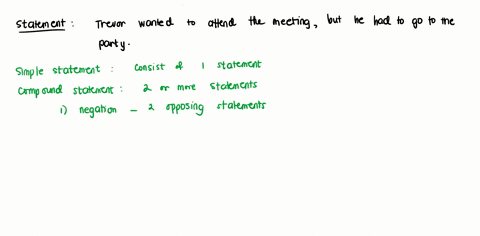 Statement : Trevor wanted to attend the meeting, but he had to go to the
party.
Simple statement : Consist of 1 statement
Compound statement : 2 or more statements
1) negation - 2 opposing statements